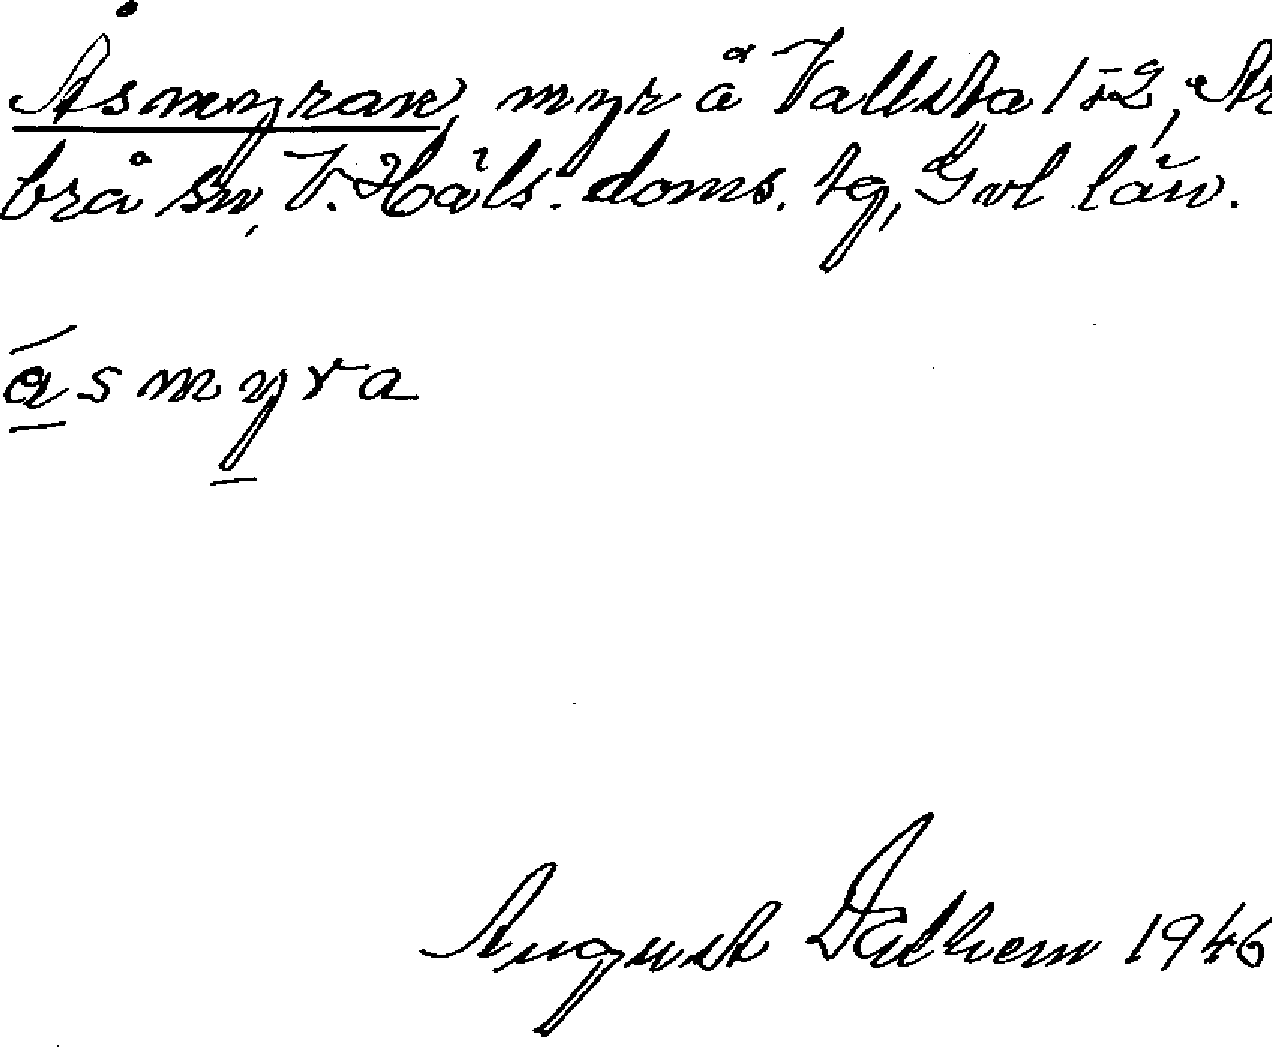 Åsmyran, myr å Vallsta 1 o 2, Ar
brå sn, V. Häls. doms. tg, Gvl län.
åsmyra
August Dalhem 1946